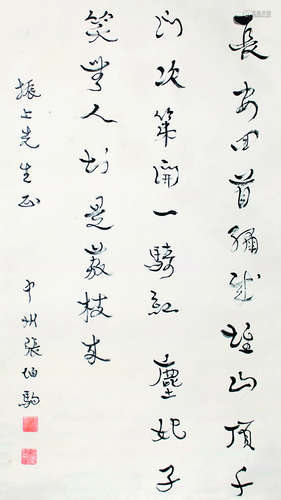 長安回首繡成堆山頂千
門次第開一騎紅塵妃子
笑無人知是荔枝来
振之先生正
中州張伯駒